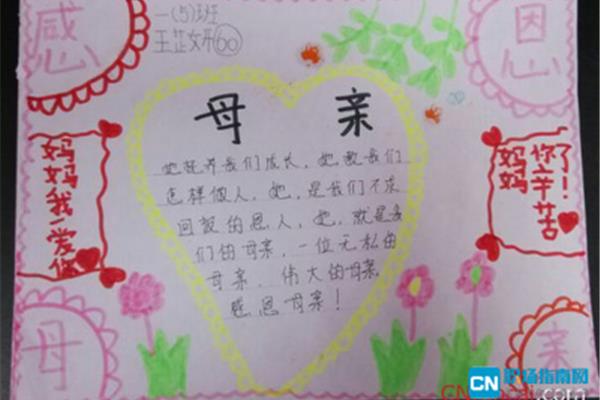 感
恩
一(5)班
王芷妍60
母 亲
她抚养我们成长，她教我们
怎样做人，她，是我们不求
回报的恩人，她，就是我
们的母亲，一位无私的
母亲，伟大的母亲，
感恩母亲！
妈妈我爱你
妈妈
你辛苦
了！
母
亲
CN 职场指南网